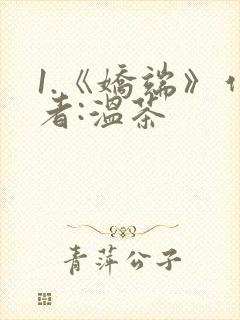 1.《娇端》作
者:温茶
青萍公子